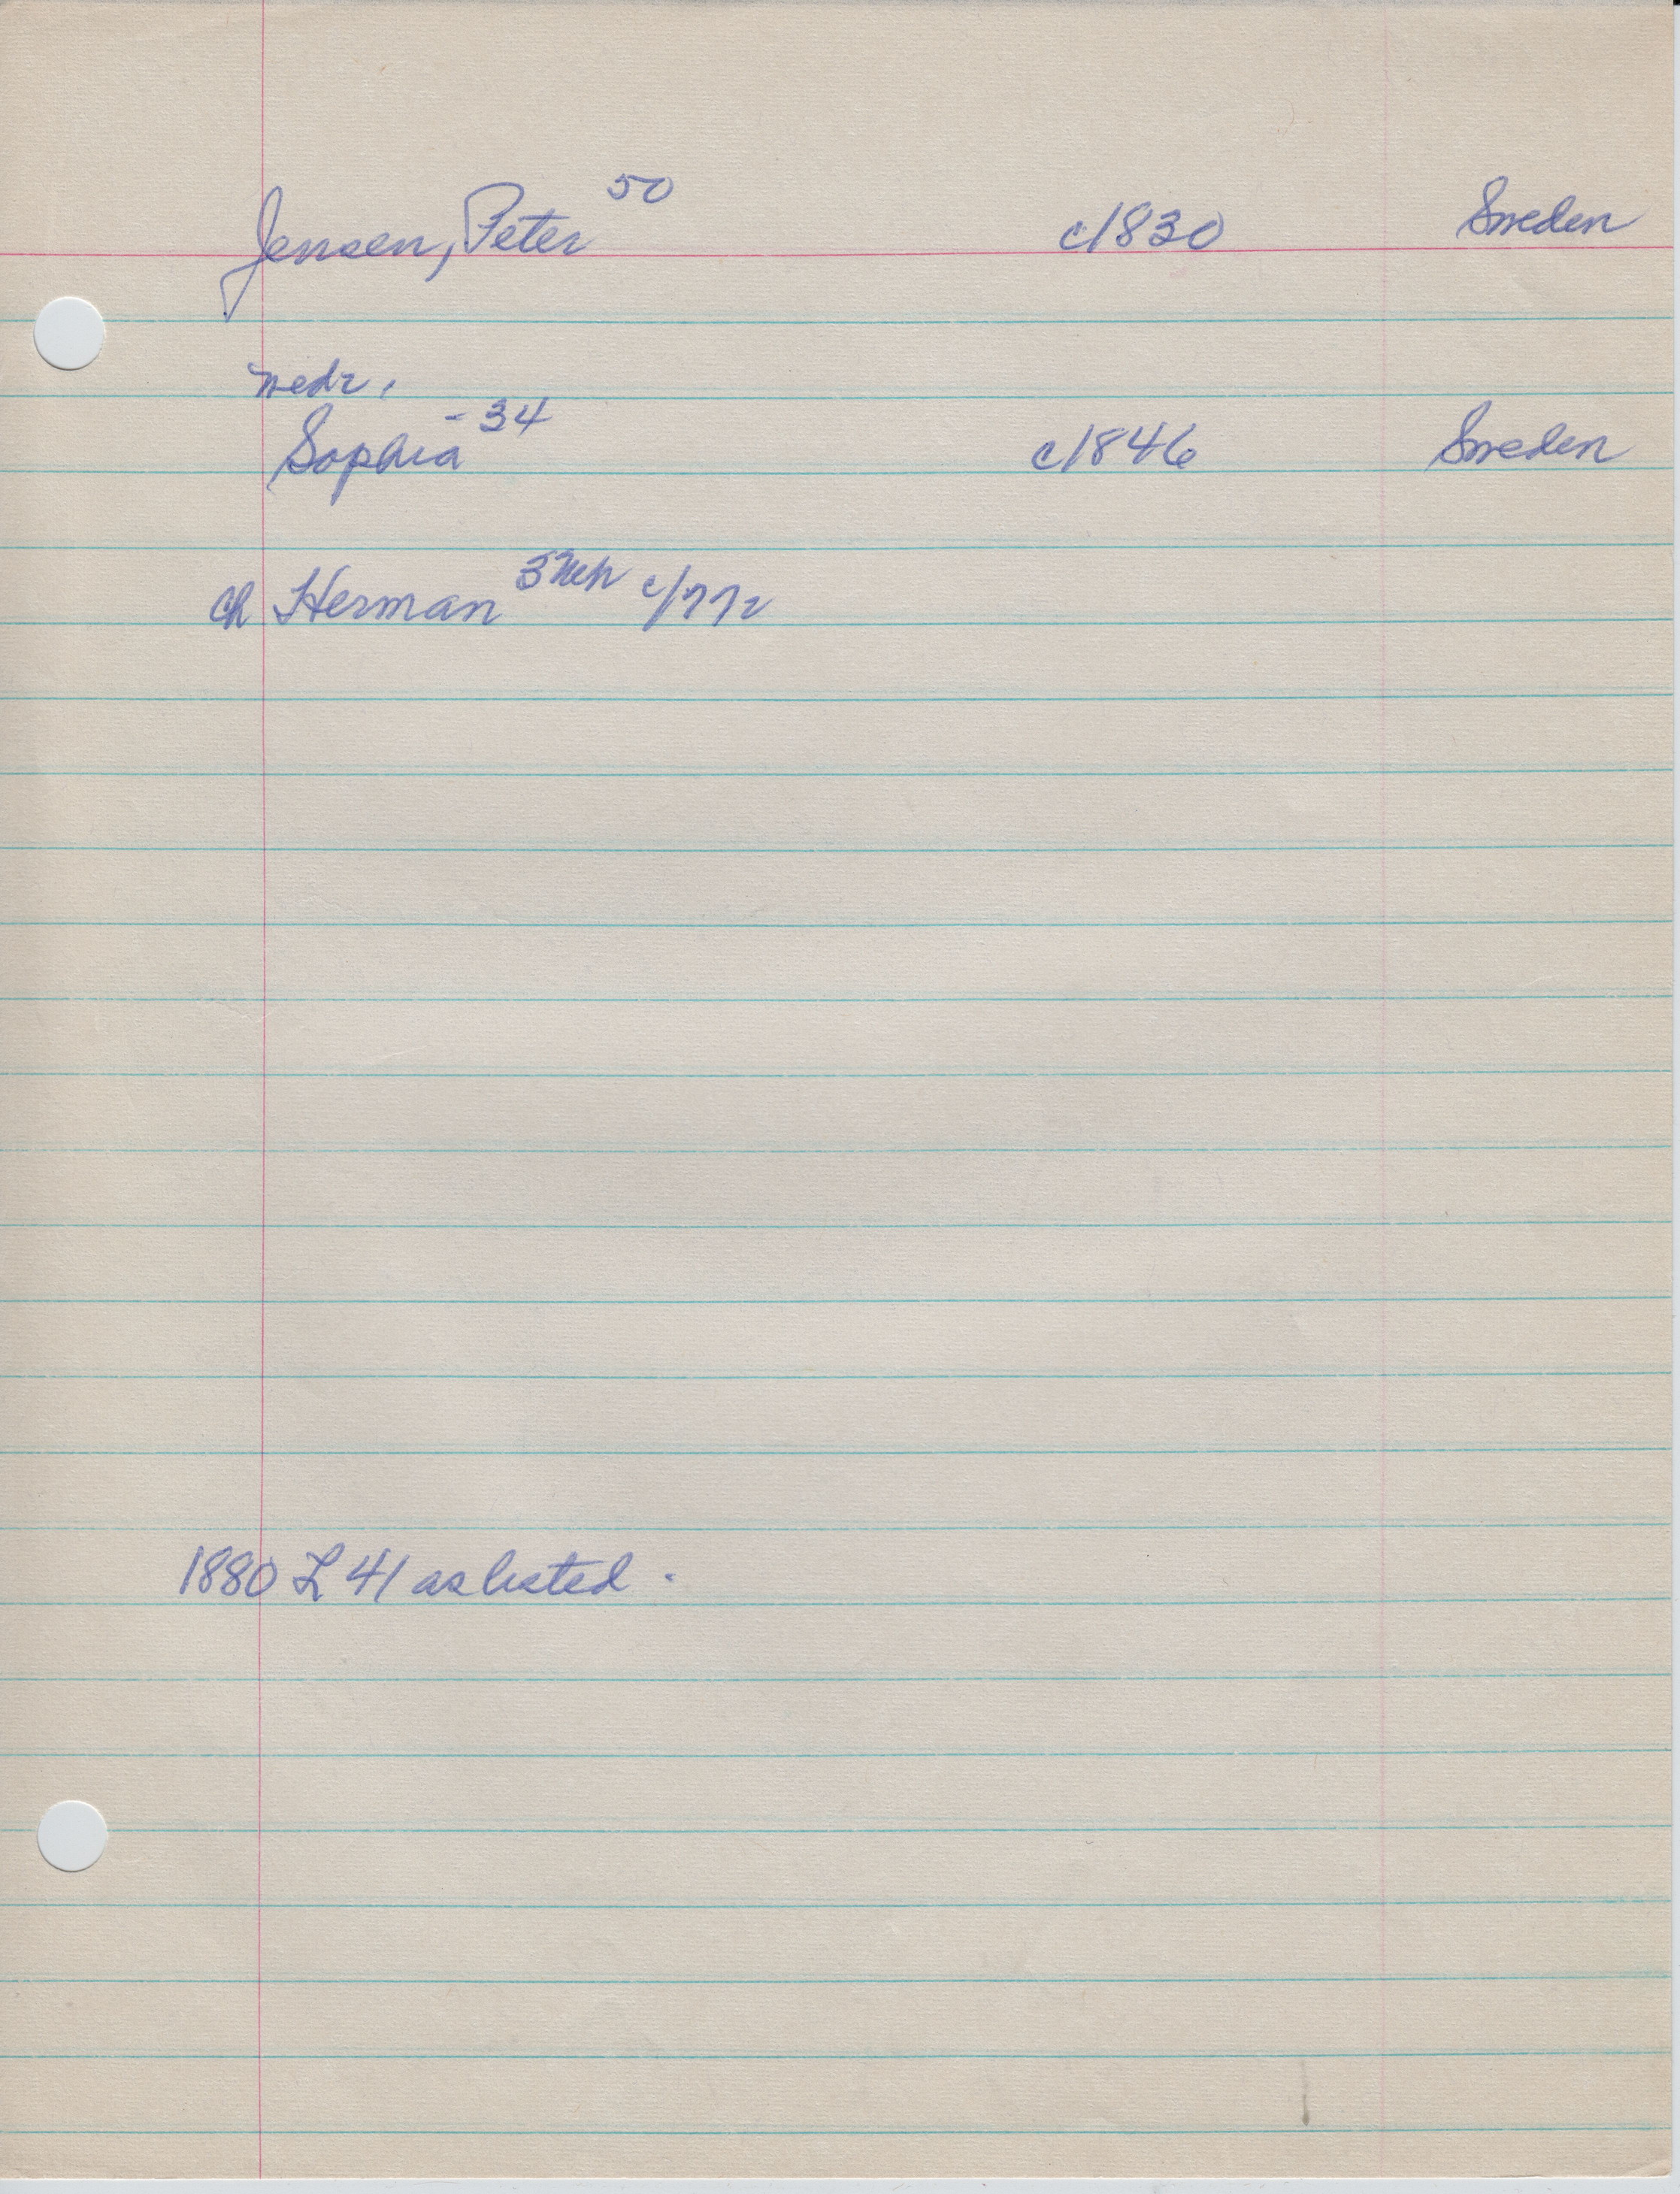 Jensen, Peter 50 c1830 Sweden
Sophia - 34 c1846 Sweden
ch Herman 3
1880 L 41 as listed.